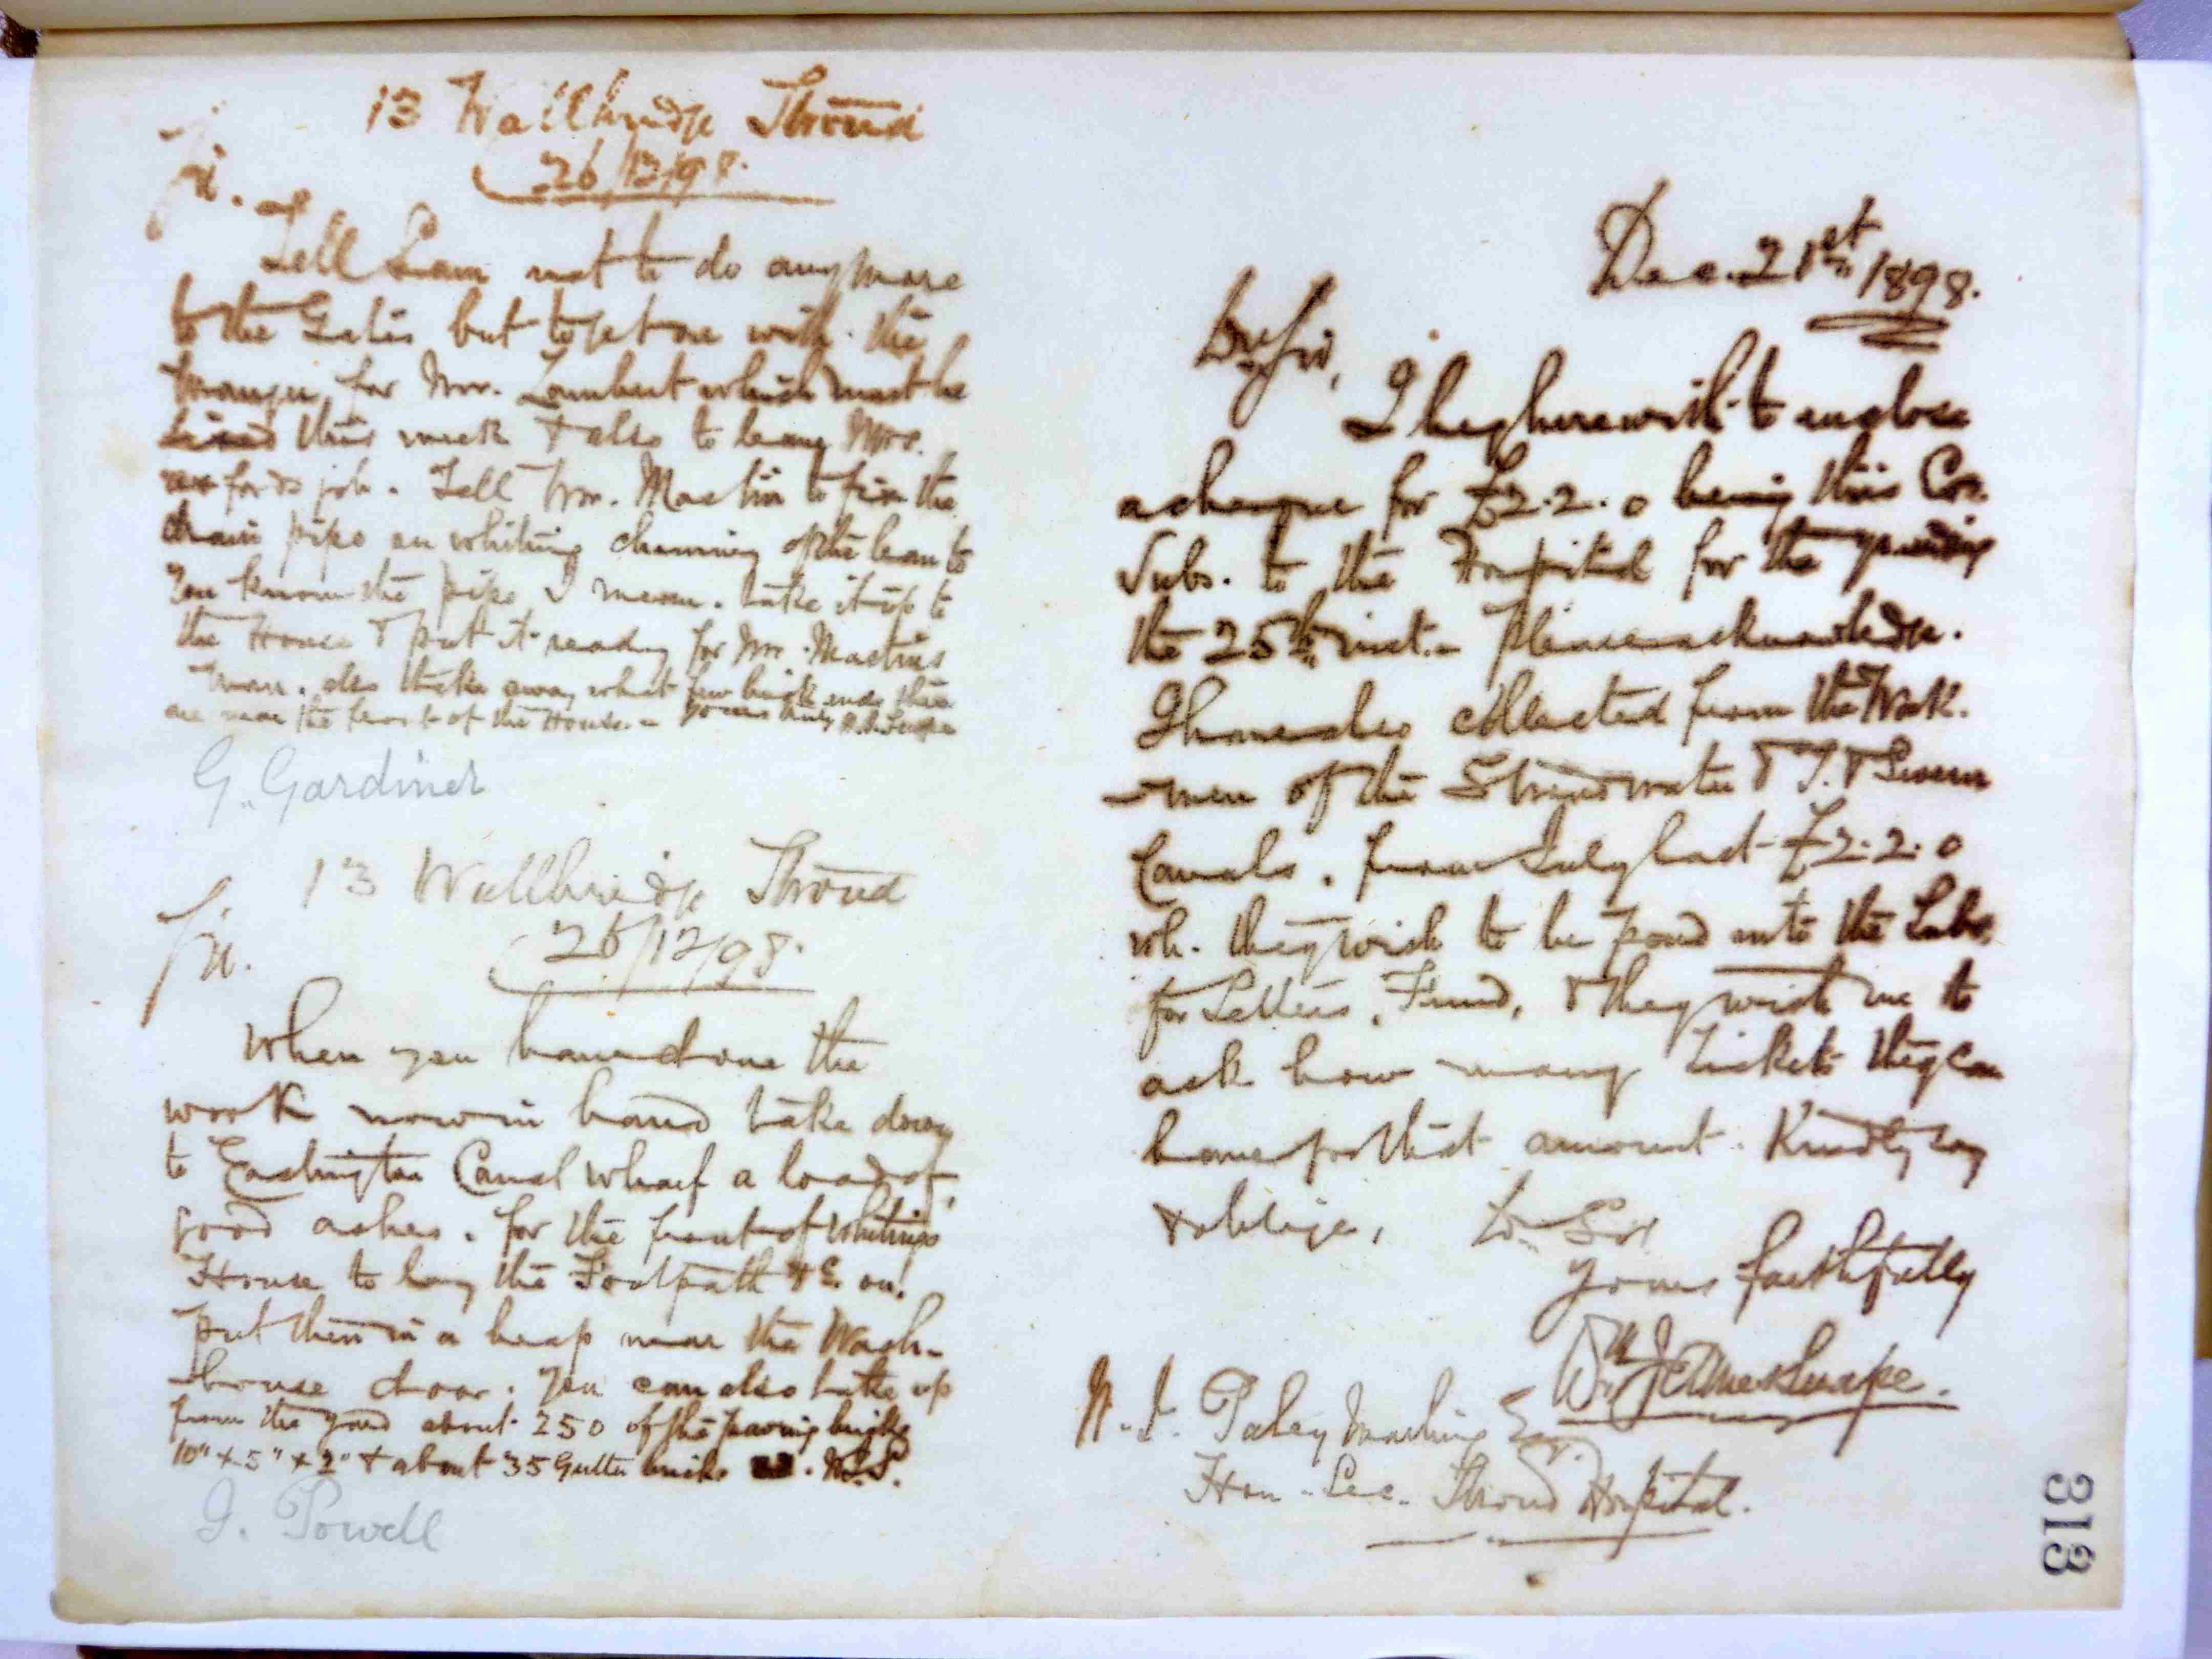 13 Wallbridge Stroud
26/12/98.
Sir.
Tell Sam not to do any more
to the Gates but to get on with the
manger for Mr. Lambert which must be
this week & also to leave Mrs.
job. Tell Mr. Martin to fix the
drain pipe on whiting chimney of the lean to
You know the pipe I mean. take it up to
the House & put it ready for Mr. Martins
man. also take away what few brick ends there
are near the front of the House. - Yours truly W.J. Snape
G. Gardiner
13 Wallbridge Stroud
26/12/98.
Sir.
When you have done the
work now in hand take down
to Eastington Canal Wharf a load of
good ashes. for the front of Whitings
House to lay the Footpath &c. on.
put them in a heap near the Wash-
-house door. You can also take up
from the yard about 250 of the paving bricks
10" x 5" x 2" & about 35 Gutter bricks. W.J.S.
J. Powell
Dec. 21st 1898.
Dr Sir,
I beg herewith to enclose
a cheque for £2.2.0 being this Cos.
Subs. to the Hospital for the year ending
the 25th inst. - Please acknowledge.
I have also collected from the Work-
-men of the Stroudwater & T. & Severn
Canals. from July last £2.2.0
wh. they wish to be paid into the Subs.
for Letters, Fund, & they wish me to
ask how many Tickets they can
have for that amount. Kindly say
& oblige,
Yours faithfully
Wm J Snape.
W. J. Paley Marling Esqr.
Hon. Sec. Stroud Hospital.
313